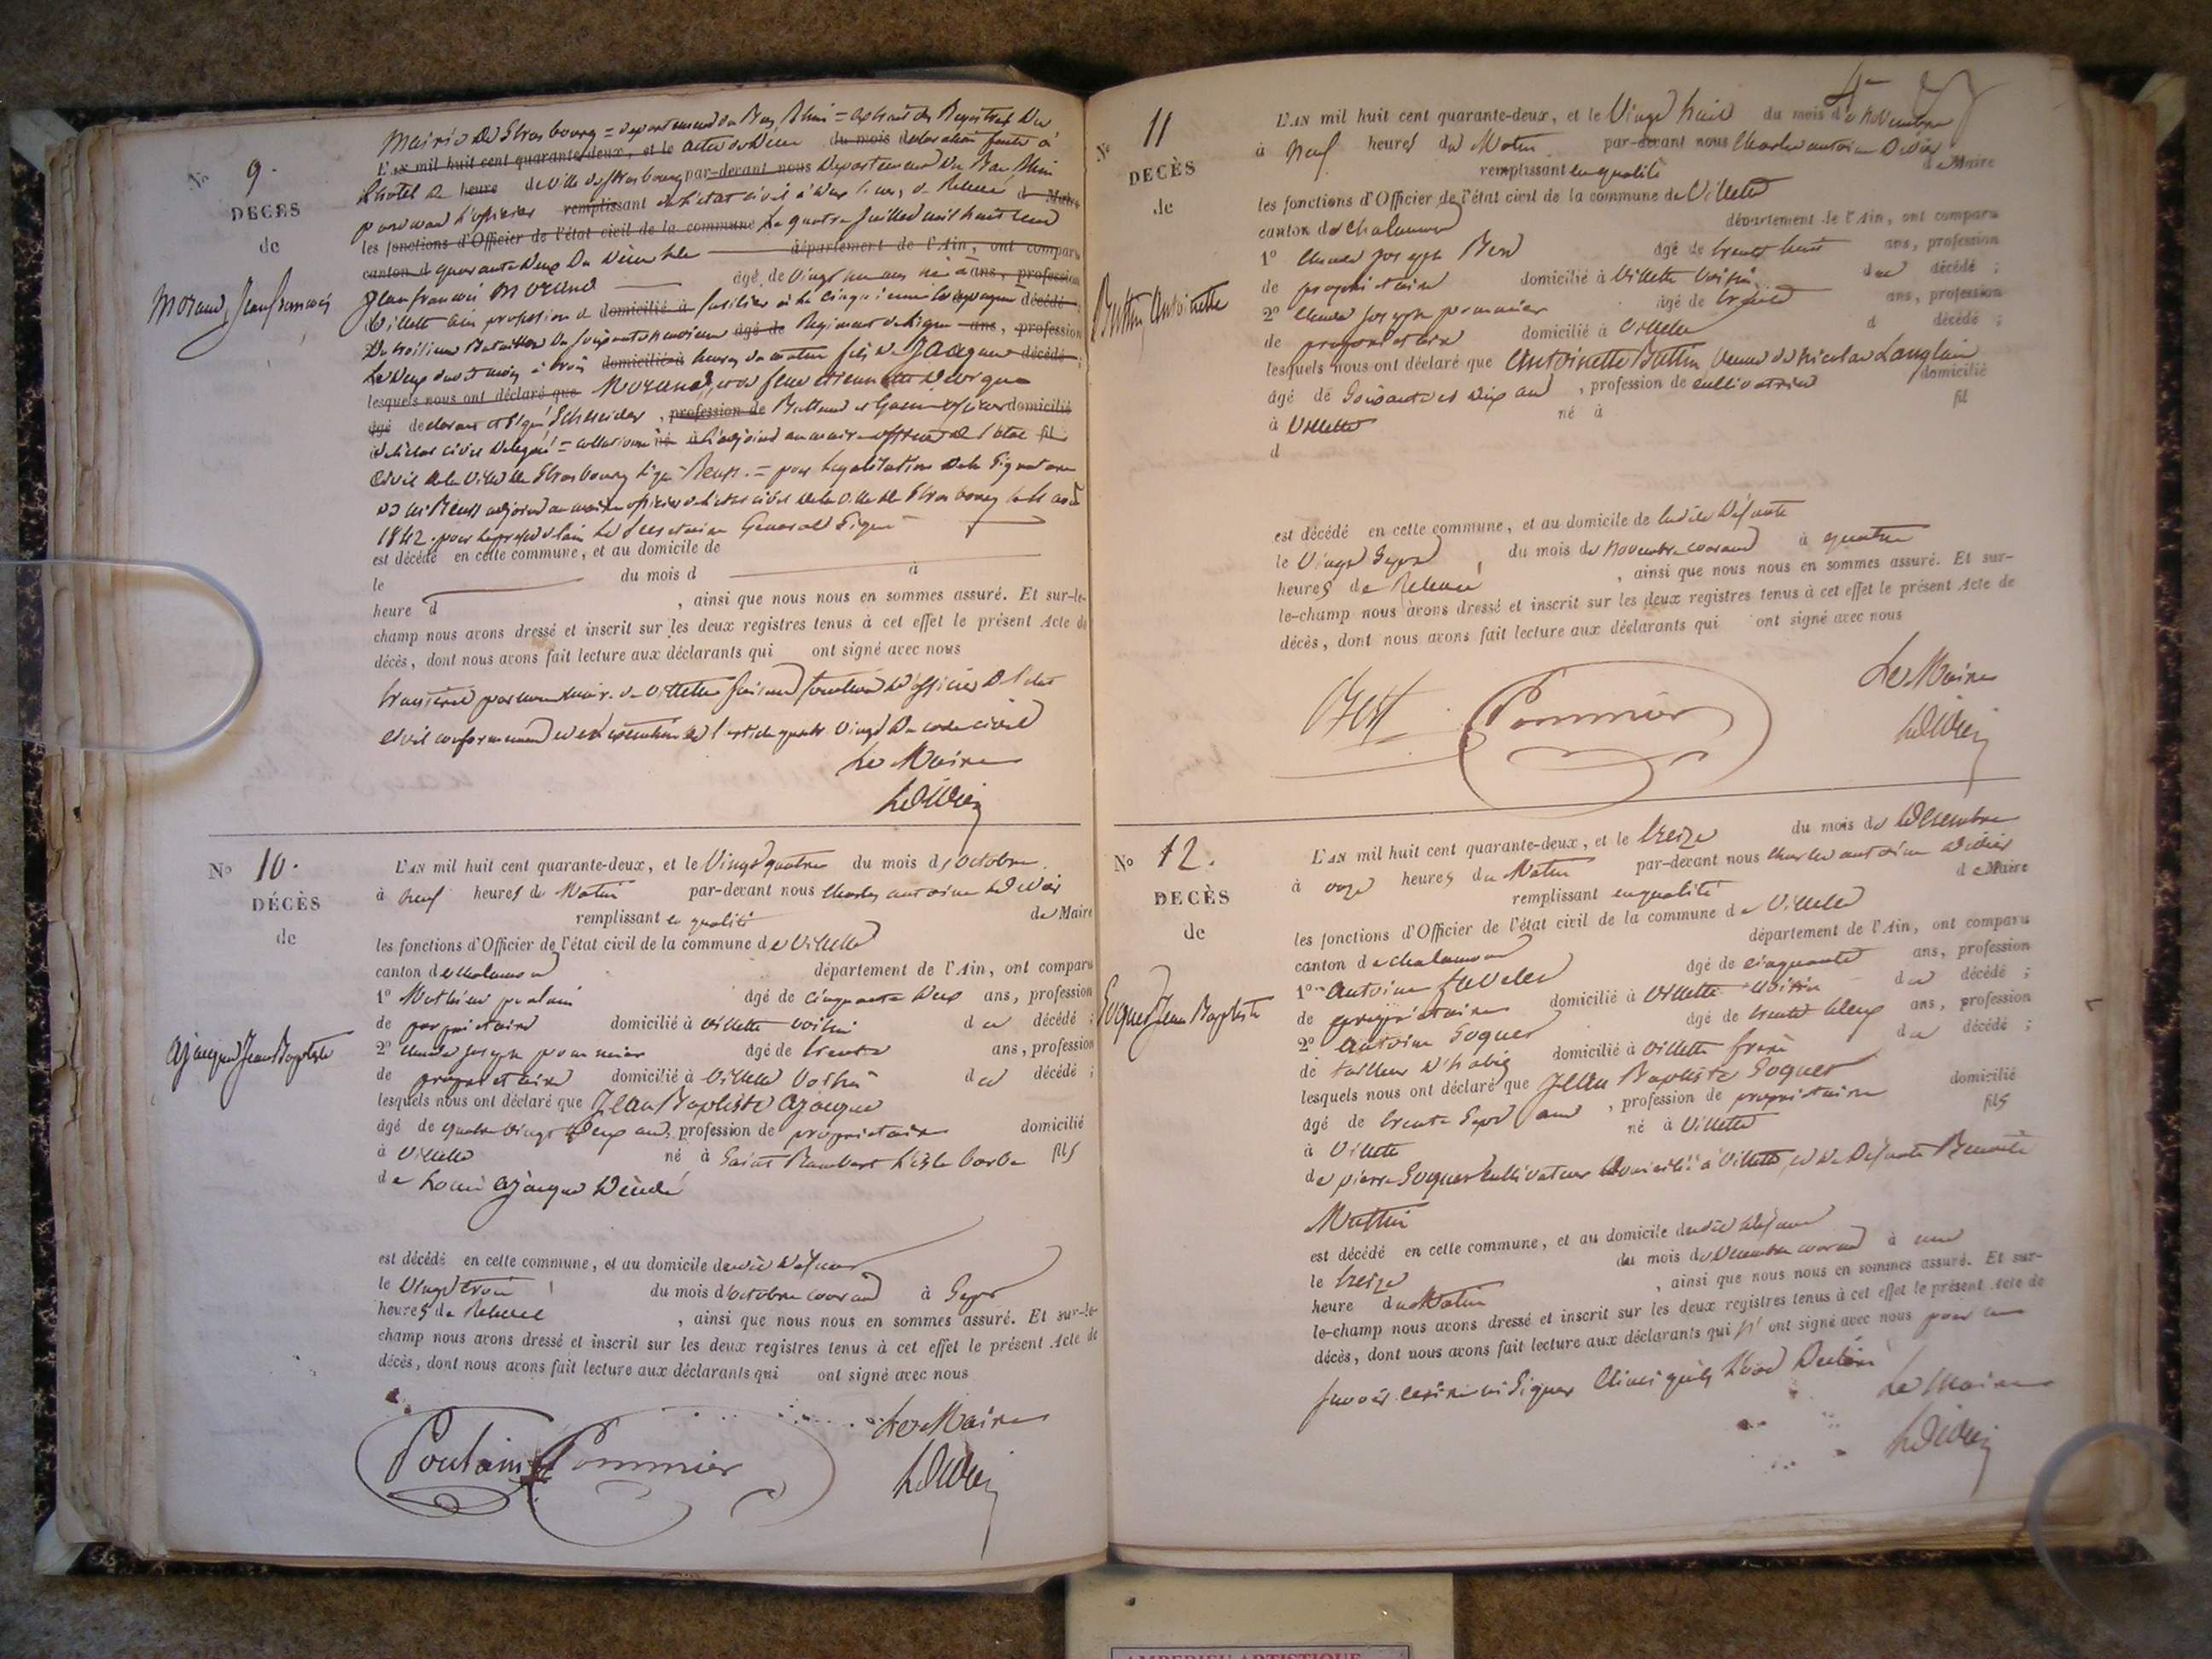 Nº 9.
DÉCÈS
de
Morand, Jean francois
Mairie de Strasbourg = departement du Bas Rhin = extrait des Registres du
L'AN mil huit cent quarante-deux, et le acte de décès du mois declaration faite à
L'hotel de heure de ville de strasbourg par-devant nous Departement du Bas Rhin
par devant l'officier remplissant de l'etat civil à deux heures de Relevé d Maire
les fonctions d'Officier de l'état civil de la commune Le quatre Juillet mil huit cent
canton d quarante deux Du Décès de département de l'Ain, ont comparu
Jean francois Morand âgé de vingt un ans né à ans, profession
Villette Ain profession de domicilié à fusilier à la cinquieme compagnie décédé ;
Du troisieme Bataillon Du soixante neuvieme âgé de Regiment de ligne ans, profession
Le deux dudit mois à trois domicilié à heures du matin fils de Jacques décédé ;
lesquels nous ont déclaré que Morand, et de feue etiennette
âgé declarans et signé Schneider, profession de domicilié
de l'etat civil délégué = né à l'adjoint au maire officier de l'état fil
Civil de la ville de Strasbourg signé Reuss. = pour legalisation de la signature
de Mr Reuss adjoint au maire officier de l'etat civil de la ville de Strasbourg le 11 août
1842. pour le préfet le Secretaire General Signé
est décédé en cette commune, et au domicile de
le du mois d à
heure d , ainsi que nous nous en sommes assuré. Et sur-le-
champ nous avons dressé et inscrit sur les deux registres tenus à cet effet le présent Acte de
décès, dont nous avons fait lecture aux déclarants qui ont signé avec nous
transcrit par nous maire de Villette faisant fonction d'officier de l'etat
civil conformement et en execution de l'article quatre vingt Du code civil
Le Maire
Nº 10.
DÉCÈS
de
ajacques Jean Baptiste
L'AN mil huit cent quarante-deux, et le Vingt quatre du mois d'octobre
à neuf heures du Matin par-devant nous Charles antoine
remplissant en qualité de Maire
les fonctions d'Officier de l'état civil de la commune de Villette
canton de chalamont département de l'Ain, ont comparu
1º Mathieu poulain âgé de cinquante deux ans, profession
de propriétaire domicilié à villette voisin du décédé ;
2º Claude joseph pommier âgé de trente ans, profession
de propriétaire domicilié à Villette Voisin du décédé ;
lesquels nous ont déclaré que Jean Baptiste ajacques
âgé de quatre vingt deux ans, profession de propriétaire domicilié
à Villette né à Saint Rambert L'isle barbe fils
de Louis ajacques décédé
est décédé en cette commune, et au domicile dudit défunt
le Vingt trois du mois d'octobre courant à Sept
heures de Relevée , ainsi que nous nous en sommes assuré. Et sur-le-
champ nous avons dressé et inscrit sur les deux registres tenus à cet effet le présent Acte de
décès, dont nous avons fait lecture aux déclarants qui ont signé avec nous
Le Maire
Poulain Pommier
Nº 11
DÉCÈS
de
Buttin Antoinette
L'AN mil huit cent quarante-deux, et le Vingt huit du mois de novembre
à neuf heures du Matin par-devant nous Charles antoine
remplissant en qualité de Maire
les fonctions d'Officier de l'état civil de la commune de Villette
canton de Chalamont département de l'Ain, ont comparu
1º Claude Joseph âgé de trente huit ans, profession
de propriétaire domicilié à Villette Voisin du décédé ;
2º Claude Joseph pommier âgé de trente ans, profession
de propriétaire domicilié à Villette d décédé ;
lesquels nous ont déclaré que Antoinette Buttin veuve de Nicolas Langlain
âgé de soixante et dix ans , profession de cultivatrice domicilié
à Villette né à fil
d
est décédé en cette commune, et au domicile de ladite défunte
le Vingt Sept du mois de novembre courant à quatre
heures de Relevée , ainsi que nous nous en sommes assuré. Et sur-
le-champ nous avons dressé et inscrit sur les deux registres tenus à cet effet le présent Acte de
décès, dont nous avons fait lecture aux déclarants qui ont signé avec nous
Le Maire
Pommier
Nº 12.
DÉCÈS
de
Goguet Jean Baptiste
L'AN mil huit cent quarante-deux, et le treize du mois de Décembre
à onze heures du Matin par-devant nous Charles antoine
remplissant en qualité de Maire
les fonctions d'Officier de l'état civil de la commune de Villette
canton de chalamont département de l'Ain, ont comparu
1º Antoine âgé de cinquante ans, profession
de propriétaire domicilié à Villette voisin du décédé ;
2º Antoine Goguet âgé de trente deux ans, profession
de tailleur d'habit domicilié à Villette frère du décédé ;
lesquels nous ont déclaré que Jean Baptiste Goguet
âgé de trente Sept ans , profession de propriétaire domicilié
à Villette né à Villette fils
de pierre Goguet cultivateur domicilié à Villette et de Défunte Benoite
Mathieu
est décédé en cette commune, et au domicile dudit défunt
le treize du mois de Décembre courant à une
heure du Matin , ainsi que nous nous en sommes assuré. Et sur-
le-champ nous avons dressé et inscrit sur les deux registres tenus à cet effet le présent Acte de
décès, dont nous avons fait lecture aux déclarants qui n' ont signé avec nous pour ne
savoir ecrire ni signer ainsi qu'ils l'ont déclaré
Le Maire
AMBERIEU ARTISTIQUE